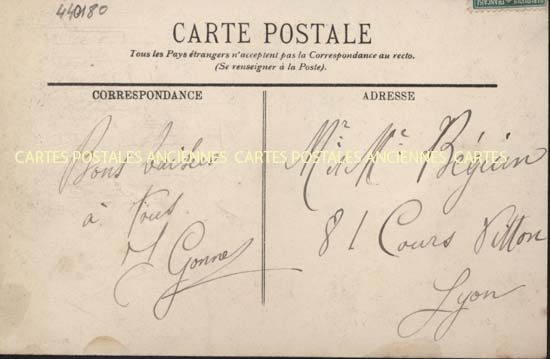 440180
CARTE POSTALE
Tous les Pays étrangers n'acceptent pas la Correspondance au recto.
(Se renseigner à la Poste).
CORRESPONDANCE
ADRESSE
CARTES POSTALES ANCIENNES CARTES POSTALES ANCIENNES CARTES
Bons baisers
à tous
J Gonne
Mr & Me Béguin
81 Cours Vitton
Lyon